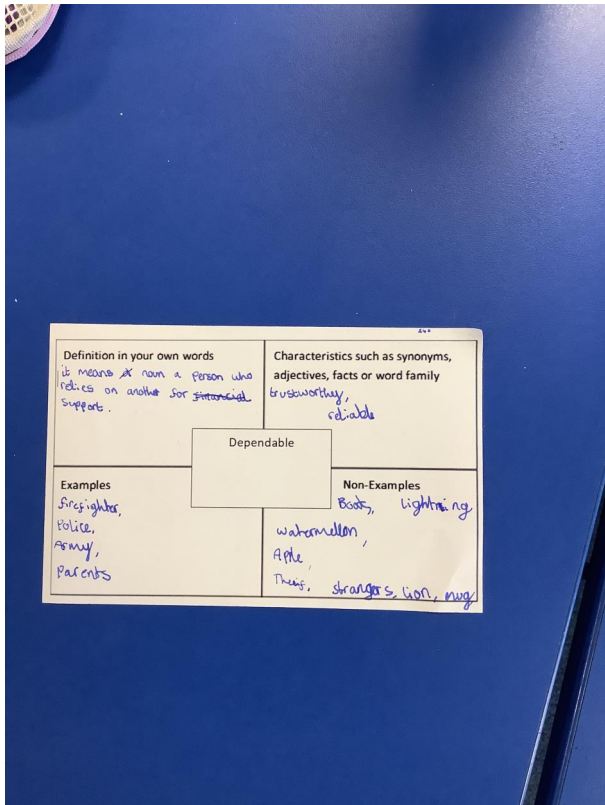 Definition in your own words
it means noun a person who
relies on another for financial
support.
Characteristics such as synonyms,
adjectives, facts or word family
trustworthy,
reliable
Dependable
Examples
firefighter,
Police,
Army,
Parents
Non-Examples
Boats, lightning
watermellon,
Aple,
Theif, strangers, lion, mug